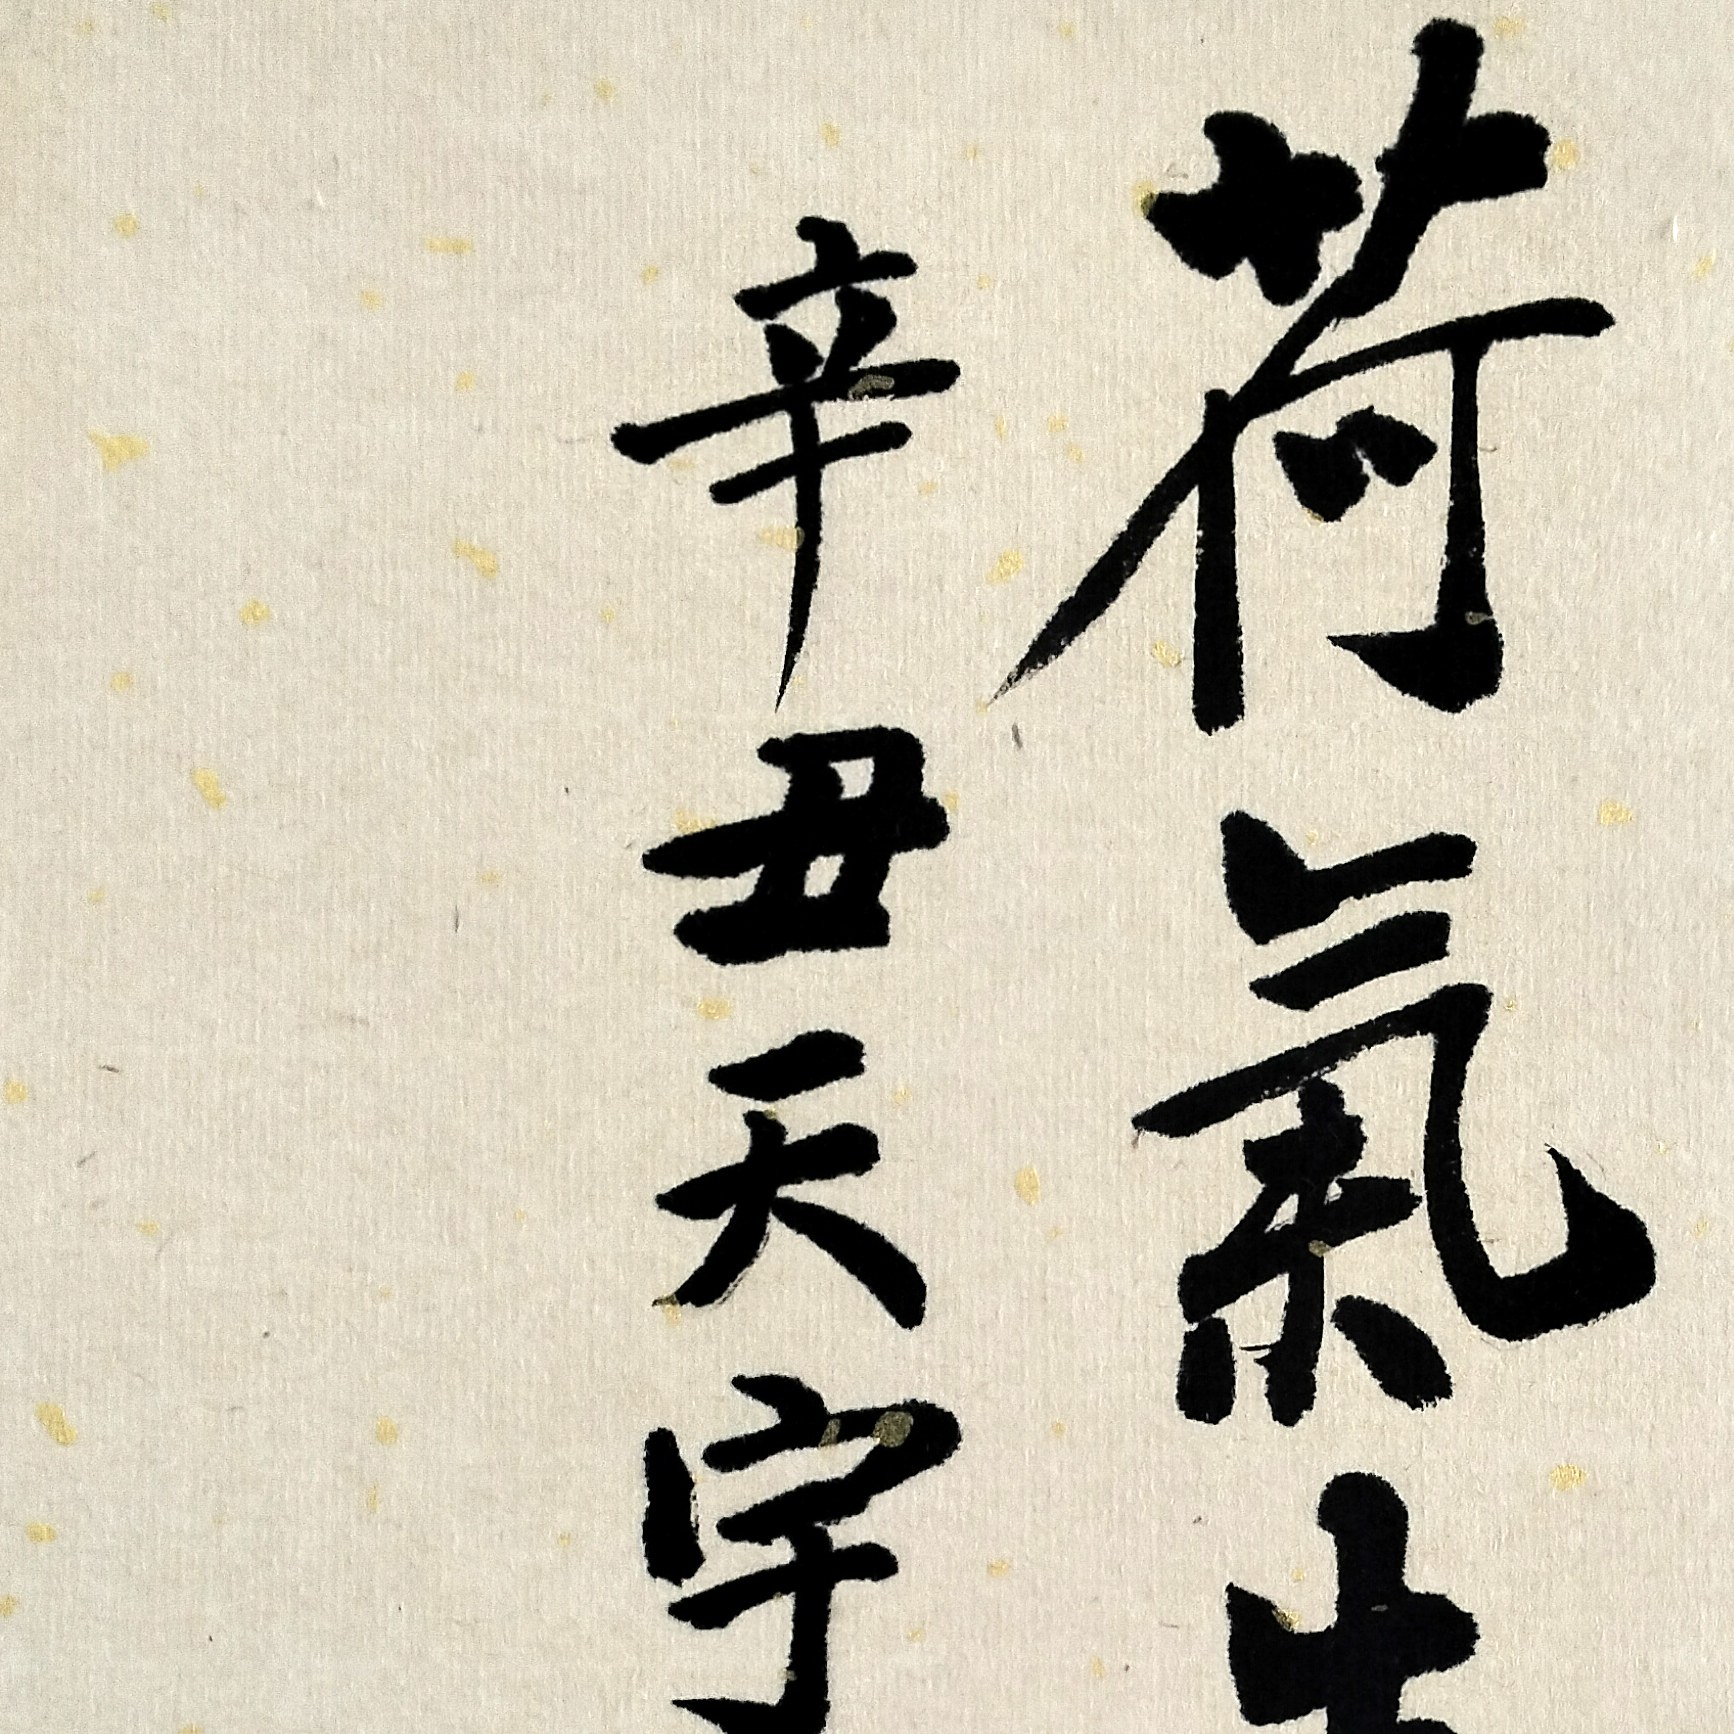 荷氣
辛丑天宇